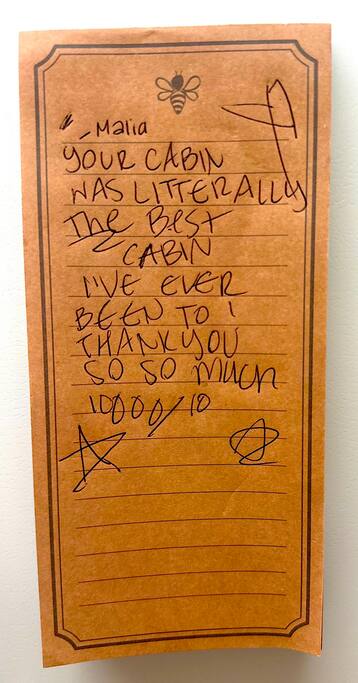 " - Malia
YOUR CABIN
WAS LITTERALLY
The BEST
CABIN
I'VE EVER
BEEN TO !
THANK YOU
SO SO MUCH
10000/10